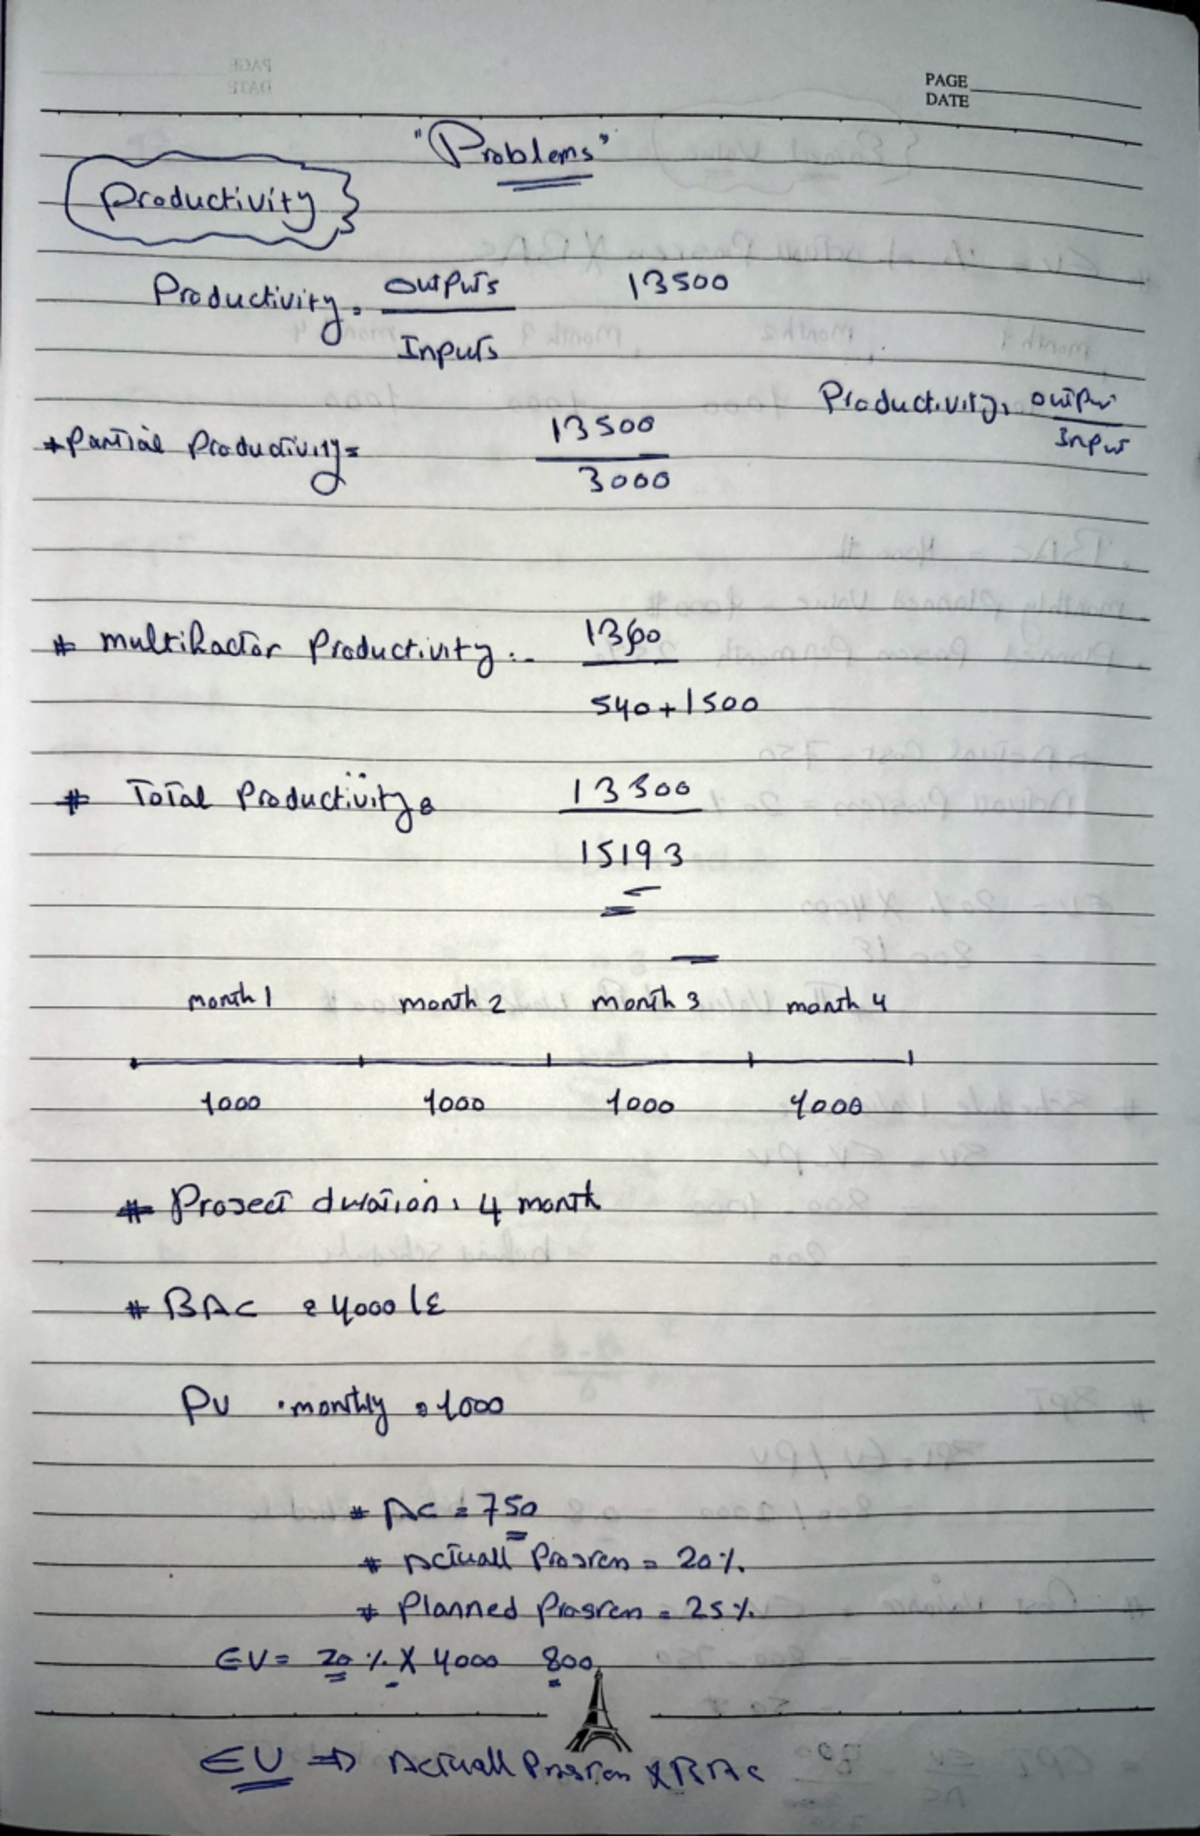 PAGE
DATE
"Problems"
Productivity
Productivity = outputs / Inputs 13500
Productivity, output / Input
* Partial Productivity = 13500 / 3000
# multifactor Productivity :- 1360 / 540+1500
# Total Productivity = 13500 / 15193
month 1 month 2 month 3 month 4
1000 1000 1000 1000
# Project duration : 4 month
# BAC = 4000 LE
PV monthly = 1000
# AC = 750
# Actuall Progress = 20%
# Planned Progress = 25%
EV = 20% X 4000 800
EV ⇒ Actuall Progress X BAC